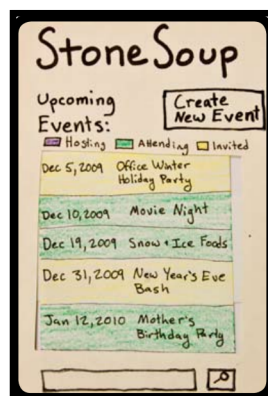 Stone Soup
Upcoming
Events:
Create
New Event
Hosting Attending Invited
Dec 5, 2009 Office Winter
Holiday Party
Dec 10, 2009 Movie Night
Dec 19, 2009 Snow + Ice Foods
Dec 31, 2009 New Year's Eve
Bash
Jan 12, 2010 Mother's
Birthday Party